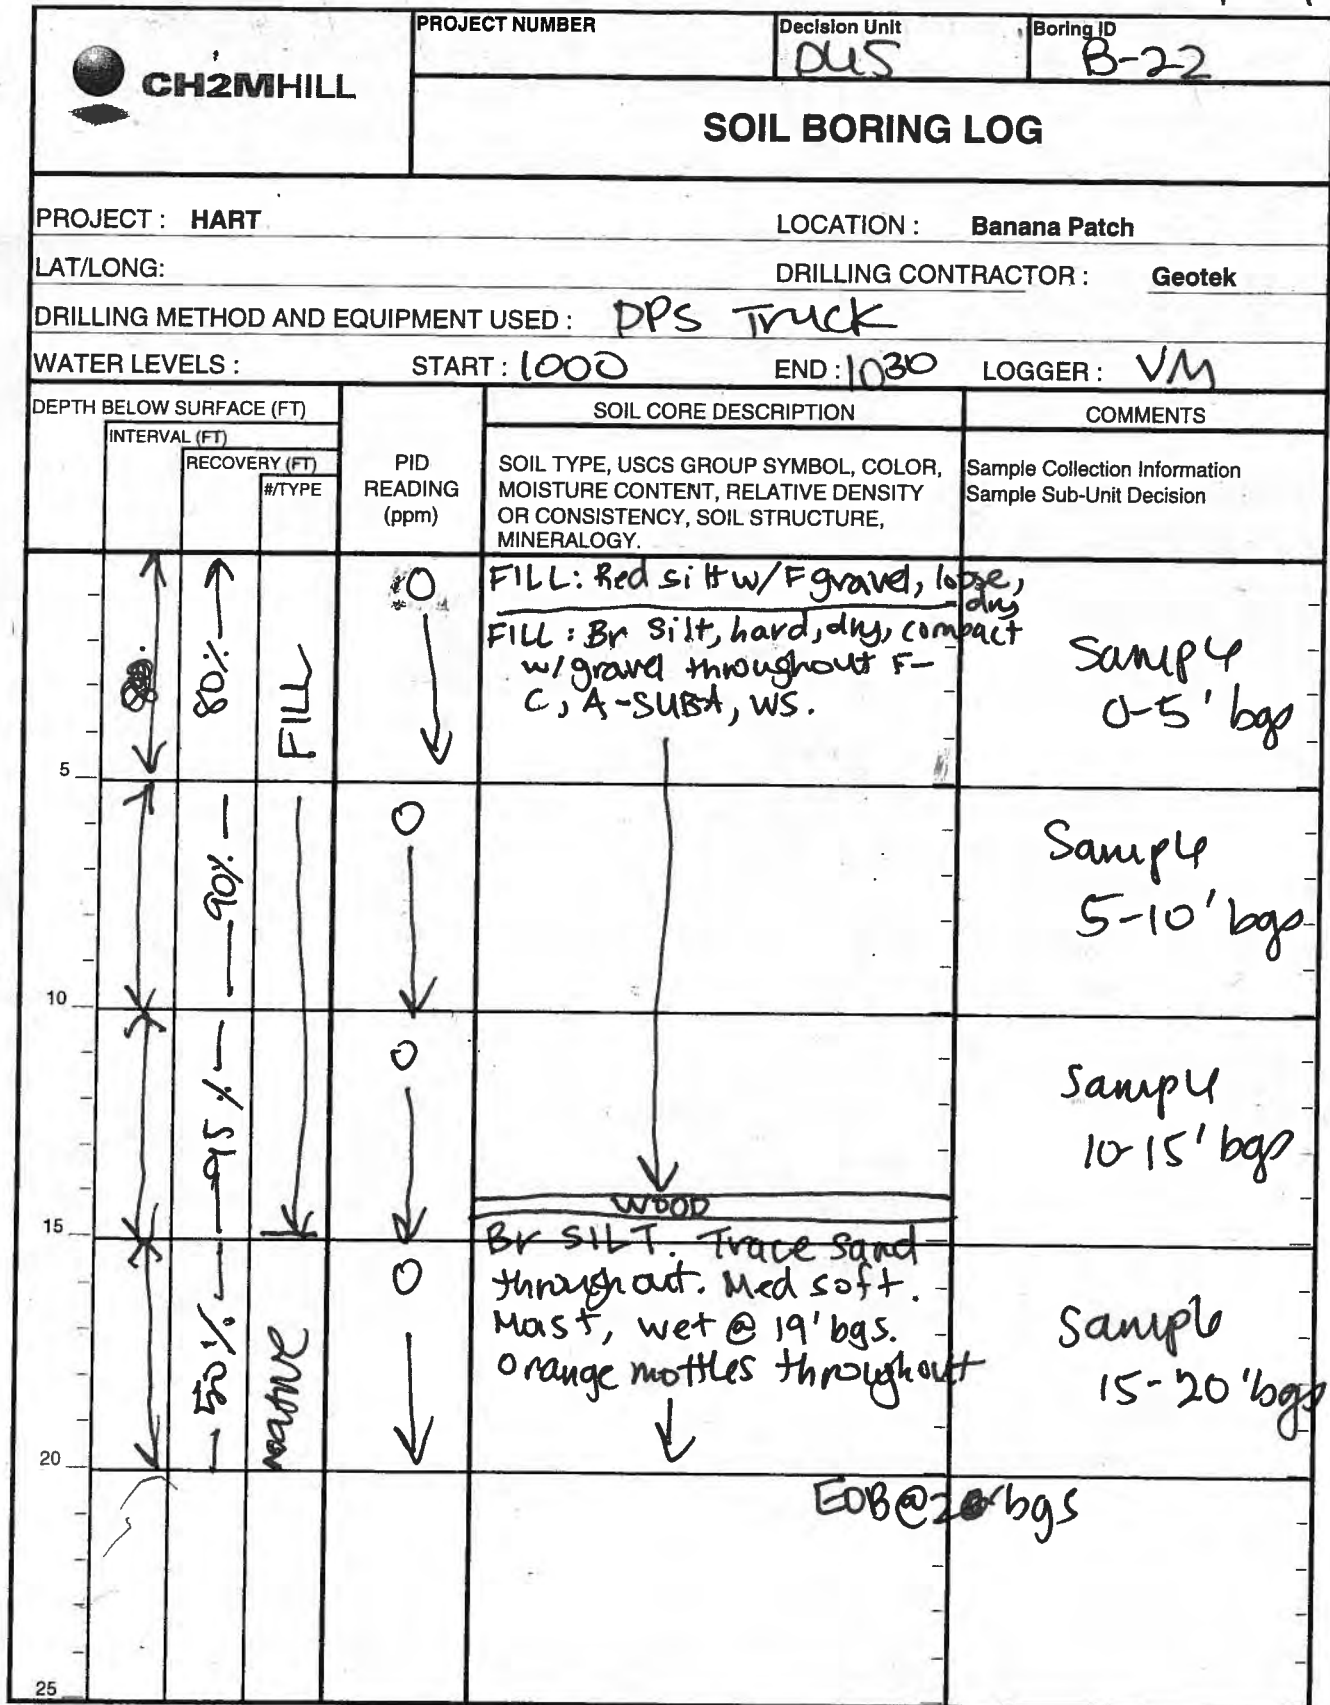 PROJECT NUMBER
Decision Unit
DU5
Boring ID
B-22
CH2MHILL
SOIL BORING LOG
PROJECT : HART
LOCATION : Banana Patch
LAT/LONG:
DRILLING CONTRACTOR : Geotek
DRILLING METHOD AND EQUIPMENT USED : DPS Truck
WATER LEVELS :
START : 1000
END : 1030
LOGGER : VM
DEPTH BELOW SURFACE (FT)
INTERVAL (FT)
RECOVERY (FT)
#/TYPE
PID
READING
(ppm)
SOIL CORE DESCRIPTION
SOIL TYPE, USCS GROUP SYMBOL, COLOR,
MOISTURE CONTENT, RELATIVE DENSITY
OR CONSISTENCY, SOIL STRUCTURE,
MINERALOGY.
COMMENTS
Sample Collection Information
Sample Sub-Unit Decision
80%
FILL
0
FILL: Red silt w/ F gravel, loose,
dry
FILL: Br Silt, hard, dry, compact
w/ gravel throughout F-
C, A-SUBA, WS.
Sample
0-5' bgs
5
90%
0
Sample
5-10' bgs
10
95%
0
Sample
10-15' bgs
WOOD
15
50%
native
0
Br SILT. Trace sand
throughout. Med soft.
Moist, wet @ 19' bgs.
orange mottles throughout
Sample
15-20' bgs
20
EOB@20' bgs
25